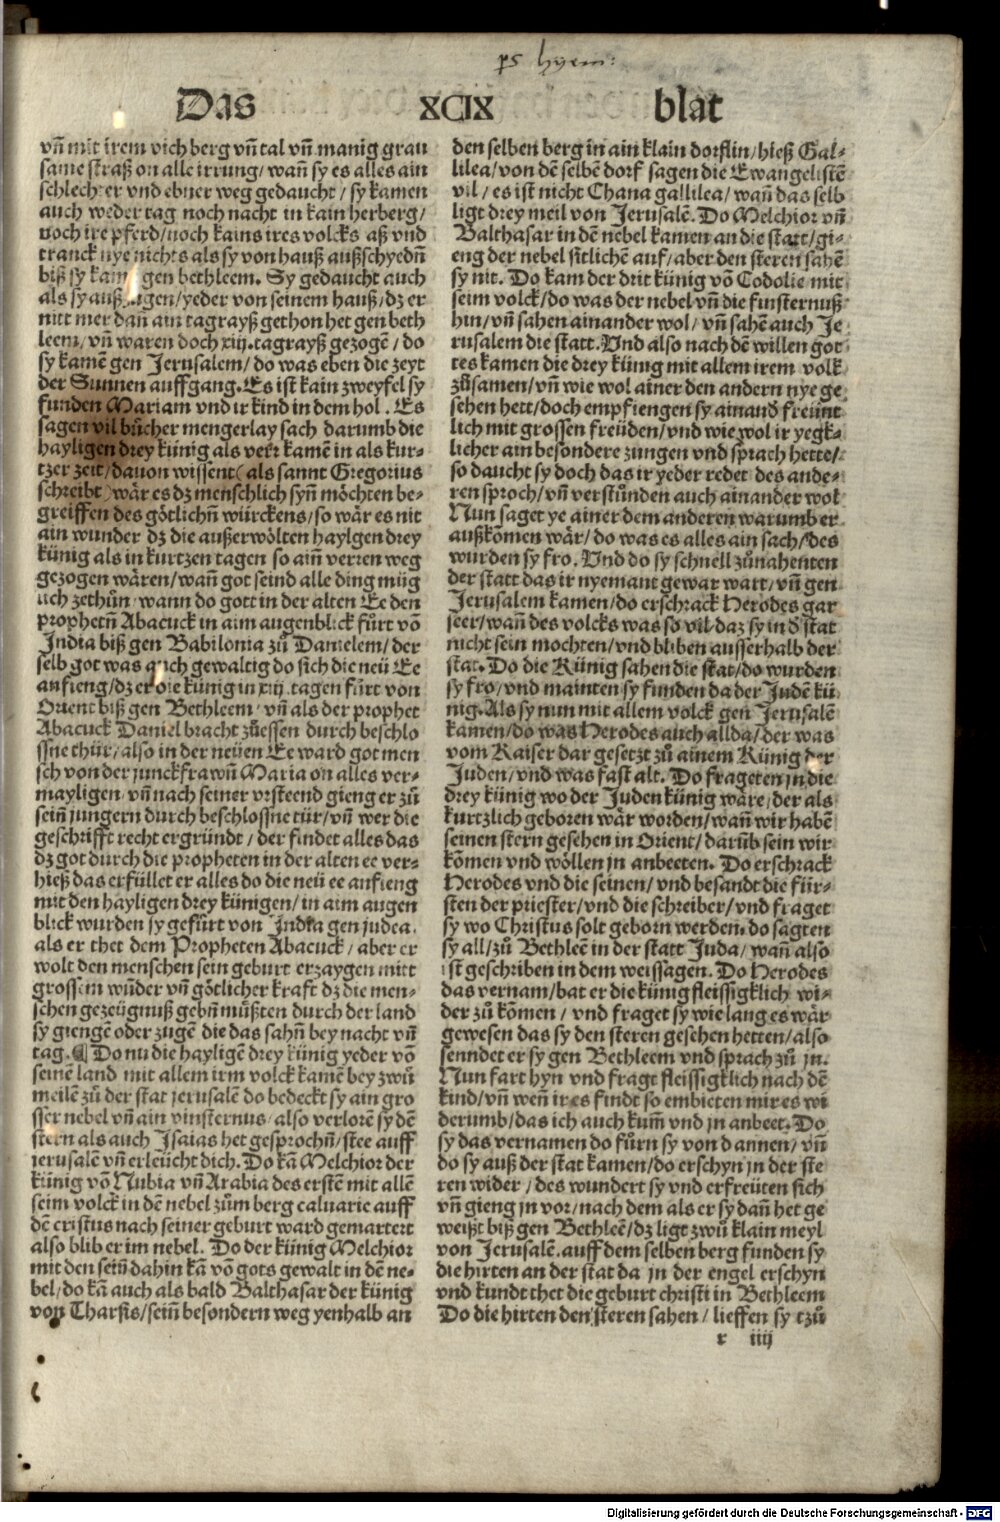 ps hyem:
Das XCIX blat
vñ mit irem vich berg vñ tal vñ manig grau
same straß on alle irrung/ wañ sy es alles ain
schlechter vnd ebner weg gedaucht/ sy kamen
auch weder tag noch nacht in kain herberg/
noch ire pferd/ noch kains ires volcks aß vnd
tranck nye nichts als sy von hauß außschyedñ
biß sy kam gen bethleem. Sy gedaucht auch
als sy auß /yeder von seinem hauß/ dz er
nitt mer dañ ain tagrayß gethon het gen beth
leem/ vñ waren doch xiij. tagrayß gezogẽ/ do
sy kamẽ gen Jerusalem/ do was eben die zeyt
der Sunnen auffgang. Es ist kain zweyfel sy
funden Mariam vnd ir kind in dem hol. Es
sagen vil bůcher mengerlay sach darumb die
hayligen drey künig als verr kamẽ in als kur-
tzer zeit/ dauon wissent (als sannt Gregorius
schreibt) wär es dz menschlich syñ möchten be-
greiffen des götlichñ würckens/ so wär es nit
ain wunder dz die außerwölten haylgen drey
künig als in kurtzen tagen so aiñ verren weg
gezogen wären/ wañ got seind alle ding müg
lich zethůn/ wann do gott in der alten Ee den
prophetñ Abacuck in aim augenblick fůrt võ
India biß gen Babilonia zů Danielem/ der
selb got was auch gewaltig do sich die neü Ee
anfieng/ dz er die künig in xiij. tagen fůrt von
Orient biß gen Bethleem/ vñ als der prophet
Abacuck Daniel bracht zůessen durch beschlo
ssne thür/ also in der neüen Ee ward got men
sch von der junckfrawñ Maria on alles ver-
mayligen/ vñ nach seiner vrsteend gieng er zů
seiñ jungern durch beschlossne tür/ vñ wer die
geschrifft recht ergründt/ der findet alles das
dz got durch die propheten in der alten ee ver-
hieß das erfüllet er alles do die neü ee anfieng
mit den hayligen drey künigen/ in aim augen
blick wurden sy gefůrt von India gen judea.
als er thet dem Propheten Abacuck/ aber er
wolt den menschen sein geburt erzaygen mitt
grossem wũder vñ götlicher kraft dz die men-
schen gezeügnuß gebñ müßten durch der land
sy giengẽ oder zugẽ die das sahñ bey nacht vñ
tag. ¶ Do nu die hayligẽ drey künig yeder võ
seinẽ land mit allem irm volck kamẽ bey zwů
meilẽ zů der stat jerusalẽ do bedeckt sy ain gro
sser nebel vñ ain vinsternus/ also verlorẽ sy dẽ
stern als auch Isaias het gesprochñ/ stee auff
ierusalẽ vñ erleücht dich. Do kã Melchior der
künig võ Nubia vñ Arabia des erstẽ mit allẽ
seim volck in dẽ nebel zům berg caluarie auff
dẽ cristus nach seiner geburt ward gemartert
also blib er im nebel. Do der künig Melchior
mit den seiñ dahin kã võ gots gewalt in dẽ ne-
bel/ do kã auch als bald Balthasar der künig
von Tharsis/ seiñ besondern weg yenhalb an
den selben berg in ain klain dorflin/ hieß Gal-
lilea/ von dẽ selbẽ dorf sagen die Ewangelistẽ
vil/ es ist nicht Chana gallilea/ wañ das selb
ligt drey meil von Jerusalẽ. Do Melchior vñ
Balthasar in dẽ nebel kamen an die statt/ gi-
eng der nebel sitlichẽ auf/ aber den steren sahẽ
sy nit. Do kam der drit künig võ Codolie mit
seim volck/ do was der nebel vñ die finsternuß
hin/ vñ sahen ainander wol/ vñ sahẽ auch Je
rusalem die statt. Vnd also nach dẽ willen got
tes kamen die drey künig mit allem irem volk
zůsamen/ vñ wie wol ainer den andern nye ge
sehen hett/ doch empfiengen sy ainand freünt
lich mit grossen freüden/ vnd wie wol ir yegk-
licher ain besondere zungen vnd sprach hette/
so daucht sy doch das ir yeder redet des ande-
ren sproch/ vñ verstünden auch ainander wol
Nun saget ye ainer dem anderen warumb er
außkõmen wär/ do was es alles ain sach/ des
wurden sy fro. Vnd do sy schnell zůnahenten
der statt das ir nyemant gewar wart/ vñ gen
Jerusalem kamen/ do erschrack Herodes gar
seer/ wañ des volcks was so vil daz sy in d̃ stat
nicht sein mochten/ vnd bliben ausserhalb der
stat. Do die Künig sahen die stat/ do wurden
sy fro/ vnd mainten sy funden da der Judẽ kü
nig. Als sy nun mit allem volck gen Jerusalẽ
kamen/ do was Herodes auch allda/ der was
vom Kaiser dar gesetzt zů ainem Künig der
Juden/ vnd was fast alt. Do frageten jn die
drey künig wo der Juden künig wäre/ der als
kurtzlich geboren wär worden/ wañ wir habẽ
seinen stern gesehen in Orient/ darũb sein wir
kõmen vnd wöllen jn anbeeten. Do erschrack
Herodes vnd die seinen/ vnd besandt die für-
sten der priester/ vnd die schreiber/ vnd fraget
sy wo Christus solt geborn werden. do sagten
sy all/ zů Bethleẽ in der statt Juda/ wañ also
ist geschriben in dem weissagen. Do Herodes
das vernam/ bat er die künig fleissigklich wi-
der zů kõmen/ vnd fraget sy wie lang es wär
gewesen das sy den steren gesehen hetten/ also
senndet er sy gen Bethleem vnd sprach zů jn.
Nun fart hyn vnd fragt fleissigklich nach dẽ
kind/ vñ weñ ir es findt so embieten mir es wi
derumb/ das ich auch kum̃ vnd jn anbeet. Do
sy das vernamen do fůrn sy von dannen/ vñ
do sy auß der stat kamen/ do erschyn jn der ste
ren wider/ des wundert sy vnd erfreüten sich
vñ gieng jn vor/ nach dem als er sy dañ het ge
weißt biß gen Bethleẽ/ dz ligt zwů klain meyl
von Jerusalẽ. auff dem selben berg funden sy
die hirten an der stat da jn der engel erschyn
vnd kundt thet die geburt christi in Bethleem
Do die hirten den steren sahen/ lieffen sy tzů
r iiij
Digitalisierung gefördert durch die Deutsche Forschungsgemeinschaft - DFG